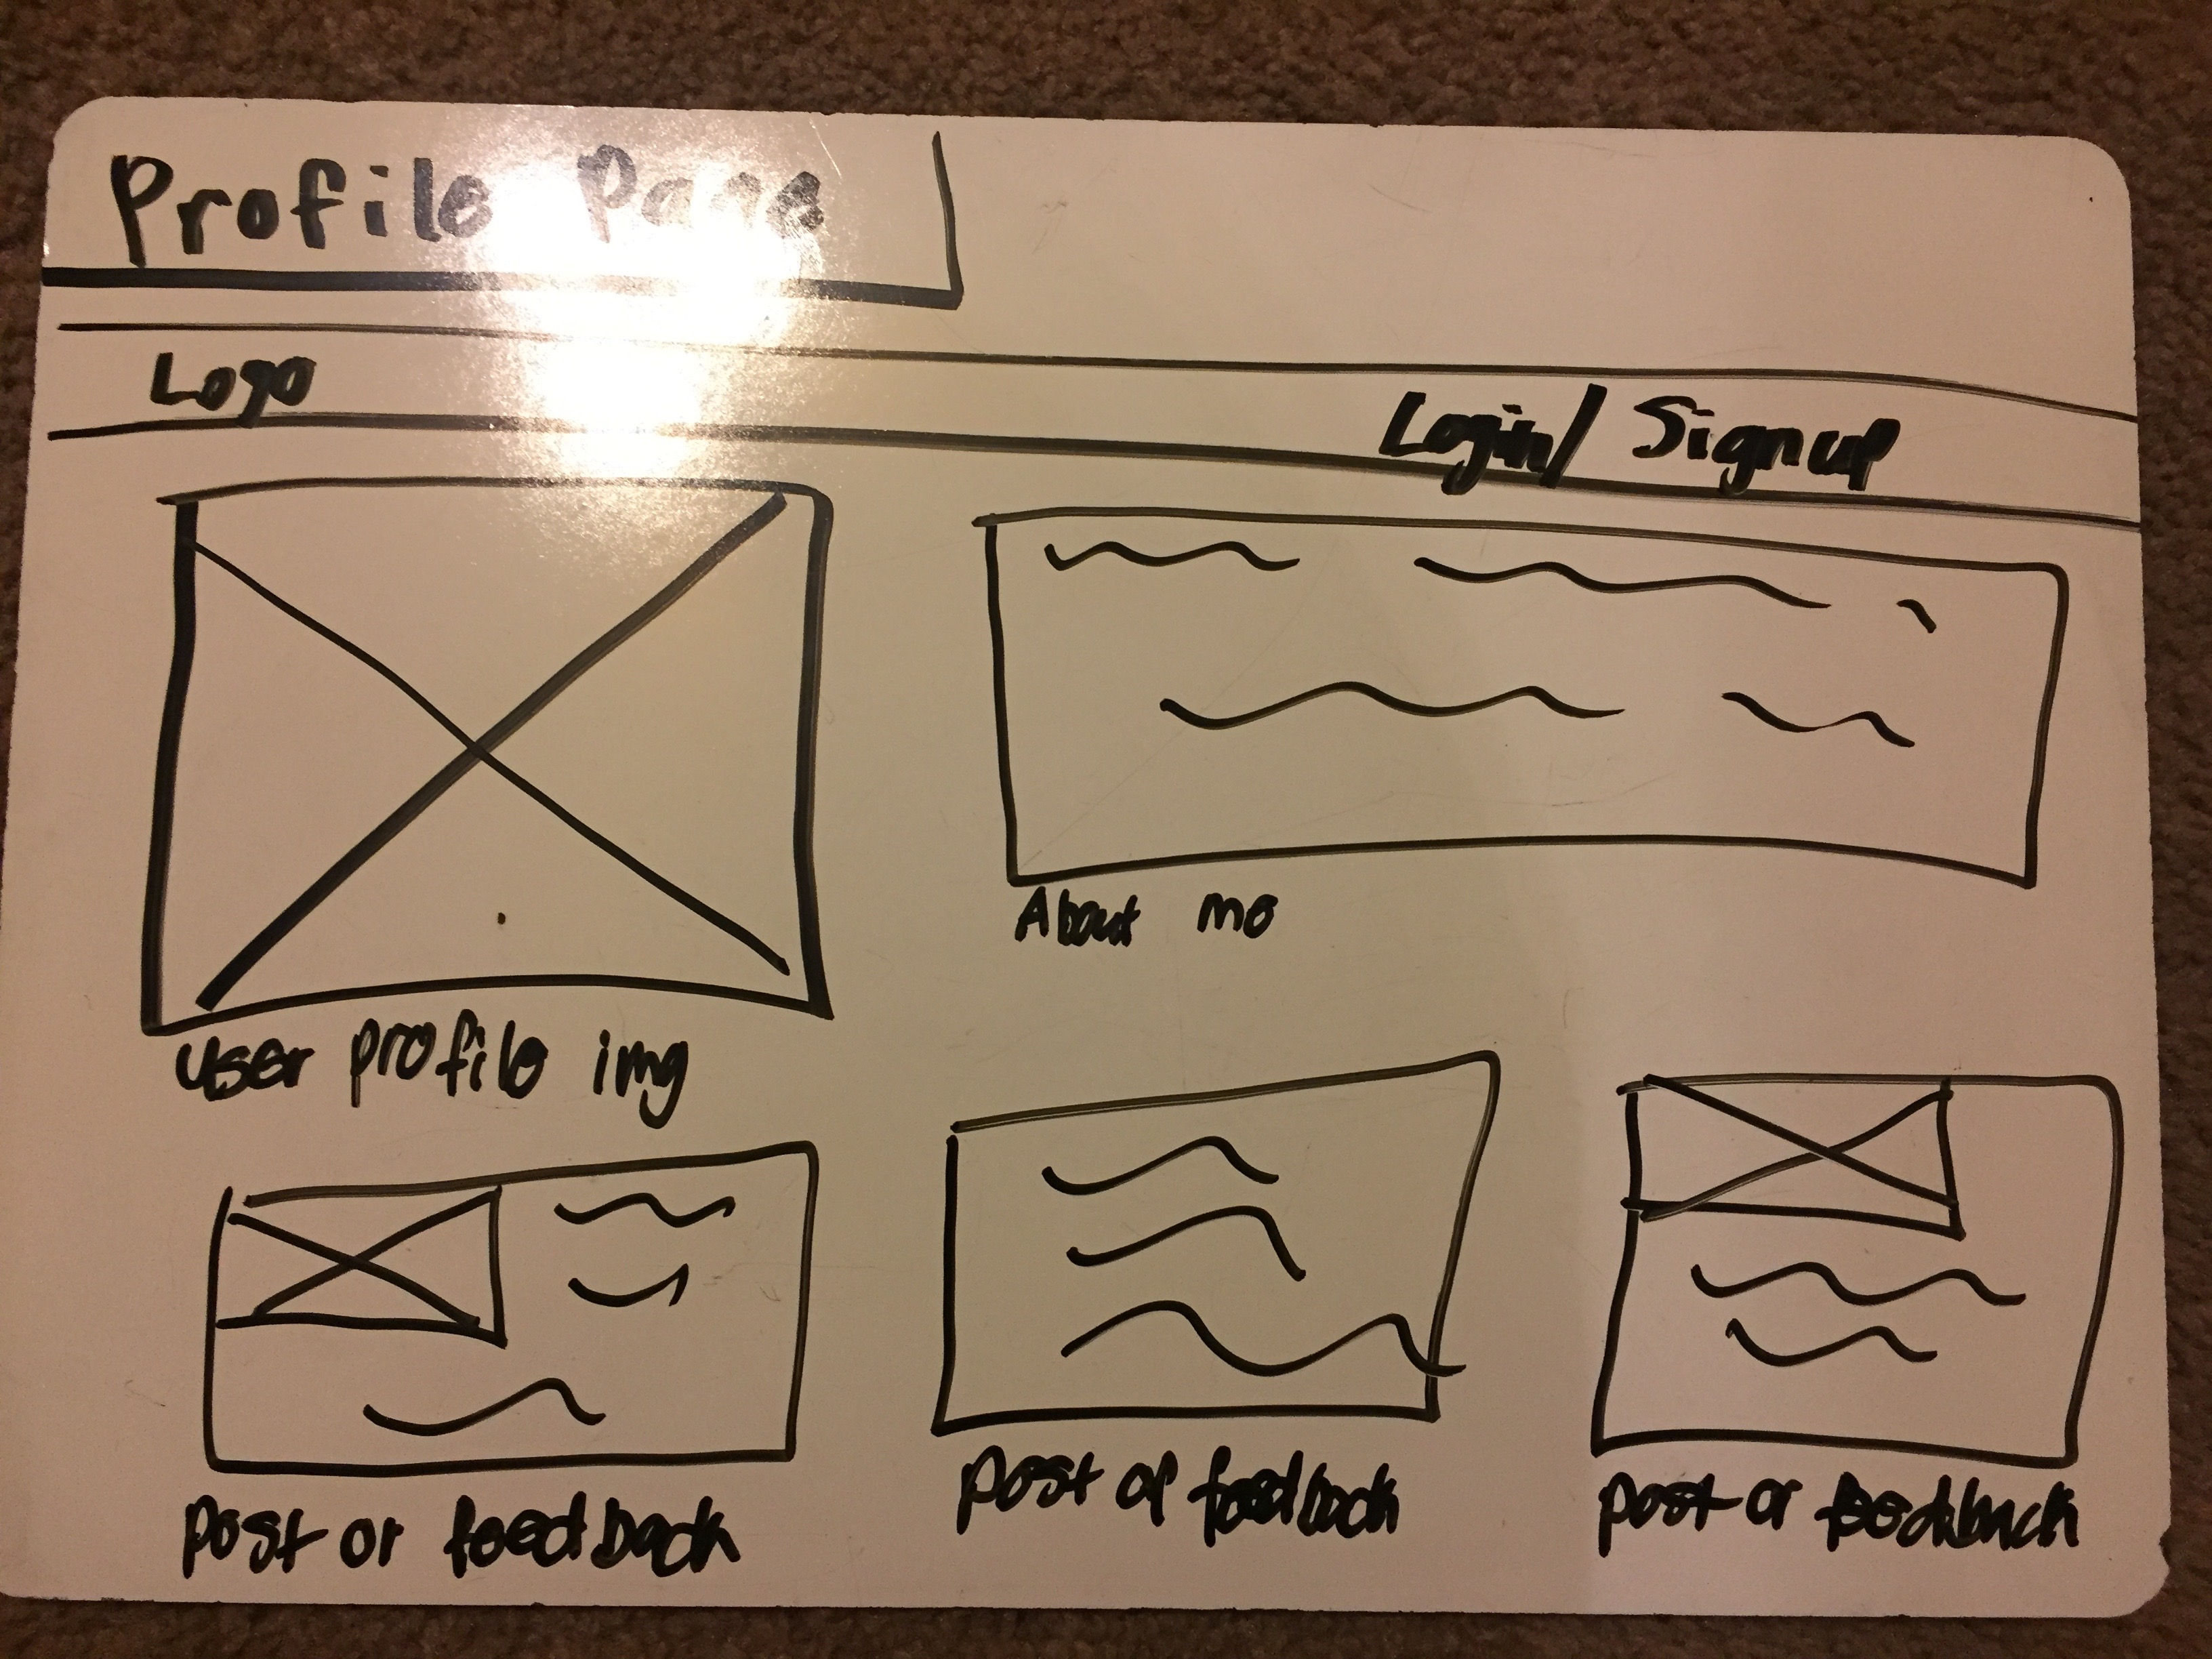 Profile Page
Logo
Login/ Signup
About me
User profile img
post or feedback
post or feedback
post or feedback